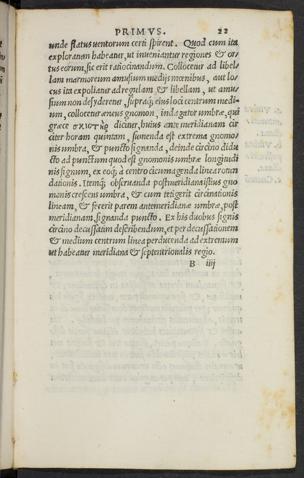 PRIMVS. 22
unde flatus uentorum certi spirent. Quod cum ita
exploratum habeatur, ut inueniantur regiones & or
tus eorum, sic erit ratiocinandum. Collocetur ad libel
lam marmoreum amusium medijs mœnibus, aut lo
cus ita expoliatur ad regulam & libellam, ut amu
sium non desyderetur, supraq; eius loci centrum medi
um, collocetur æneus gnomon, indagator umbræ, qui
græce σκιοτὴρ dicitur, huius ante meridianam cir
citer horam quintam, sumenda est extrema gnomo
nis umbra, & puncto signanda, deinde circino didu
cto ad punctum quod est gnomonis umbræ longitudi
nis signum, ex eoq; à centro circumagenda linea rotun
dationis. Itemq; obseruanda postmeridiana istius gno
monis crescens umbra, & cum tetigerit circinationis
lineam, & fecerit parem antemeridianæ umbræ, post
meridianam, signanda puncto. Ex his duobus signis
circino decussatim describendum, et per decussationem
& medium centrum linea perducenda ad extremum
ut habeatur meridiana & septentrionalis regio.
B iiij